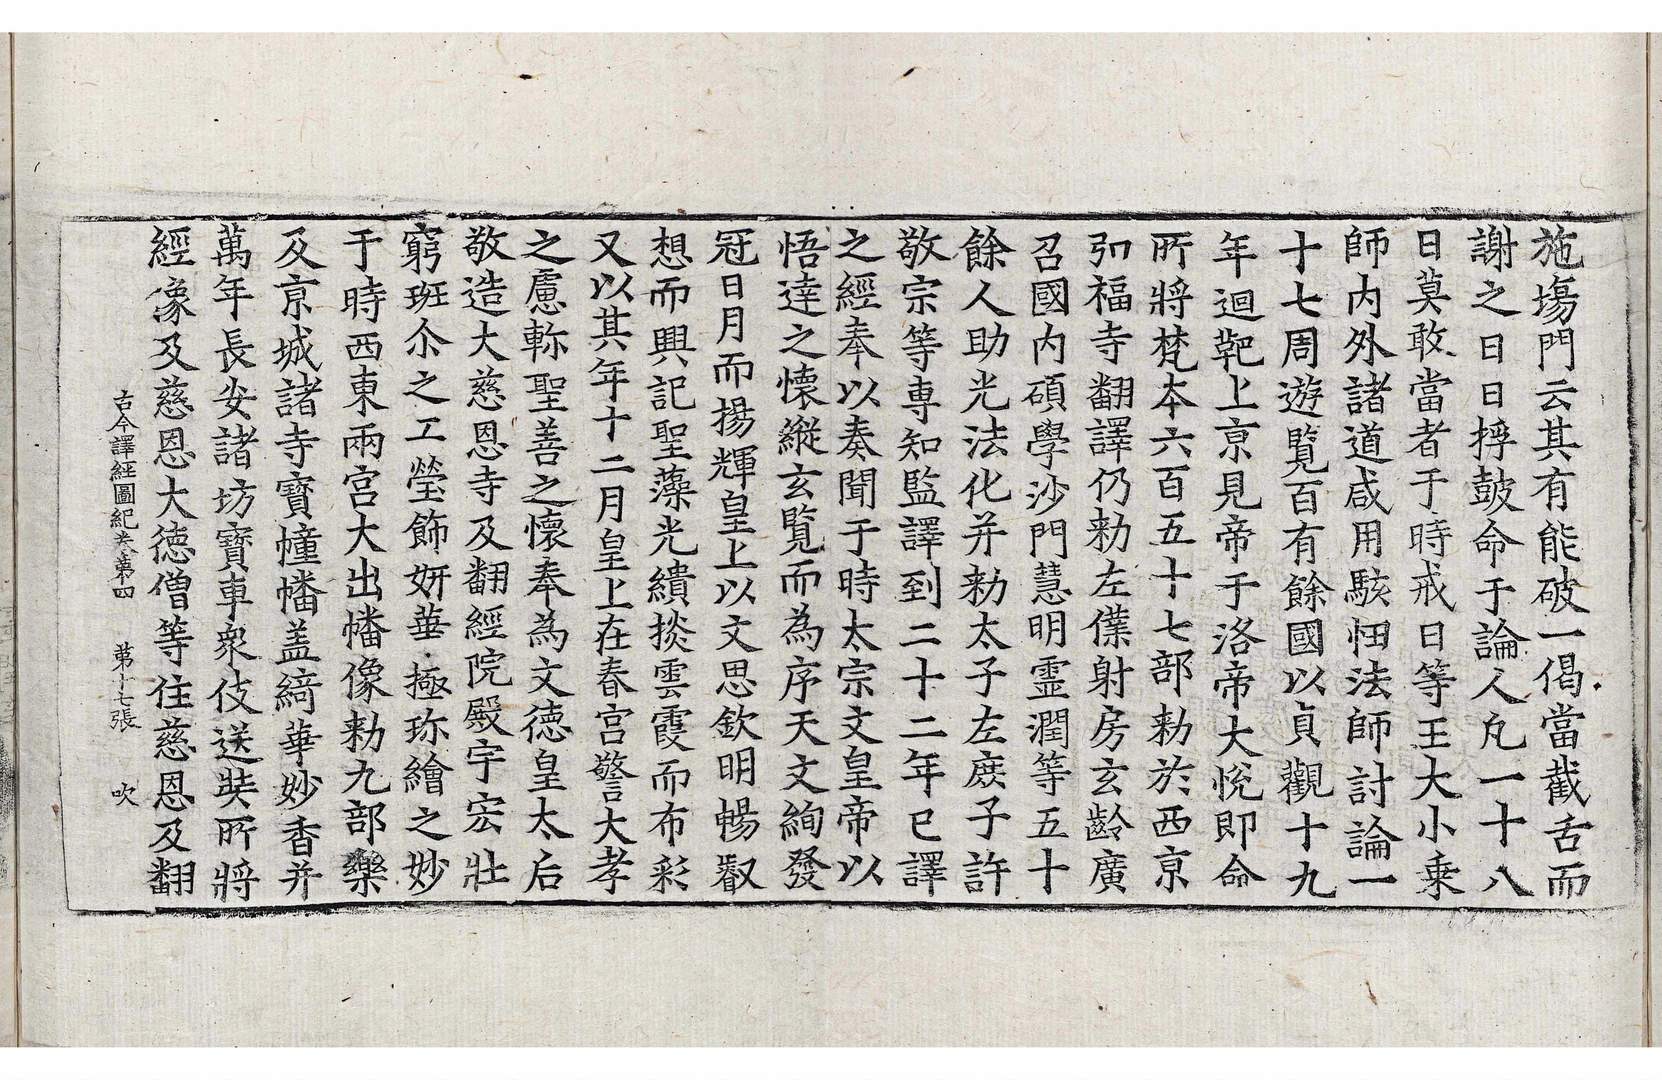 施塲門云其有能破一偈當截舌而
謝之日日捊皷命于論人凢一十八
日莫敢當者于時戒日等王大小乗
師内外諸道咸用駭忸法師討論一
十七周遊覧百有餘國以貞觀十九
年迴靶上亰見帝于洛帝大悅即命
所將梵本六百五十七部勑於西亰
弘福寺翻譯仍勑左僕射房玄齡廣
召國内碩學沙門慧明霊潤等五十
餘人助光法化并勑太子左庶子許
敬宗等専知監譯到二十二年已譯
之經奉以奏聞于時太宗文皇帝以
悟達之懐縱玄覧而為序天文絢發
冠日月而揚輝皇上以文思欽明暢叡
想而興記聖藻光繢掞雲霞而布彩
又以其年十二月皇上在春宫警大孝
之慮軫聖善之懐奉為文徳皇太后
敬造大慈恩寺及翻經院殿宇宏壯
窮班尒之工瑩飾妍華極珎繪之妙
于時西東兩宫大出幡像勑九部樂
及亰城諸寺寳幢幡盖綺華妙香并
萬年長安諸坊寳車衆伎送奘所將
經像及慈恩大徳僧等住慈恩及翻
古今譯經圖紀卷第四 第十七張 吹